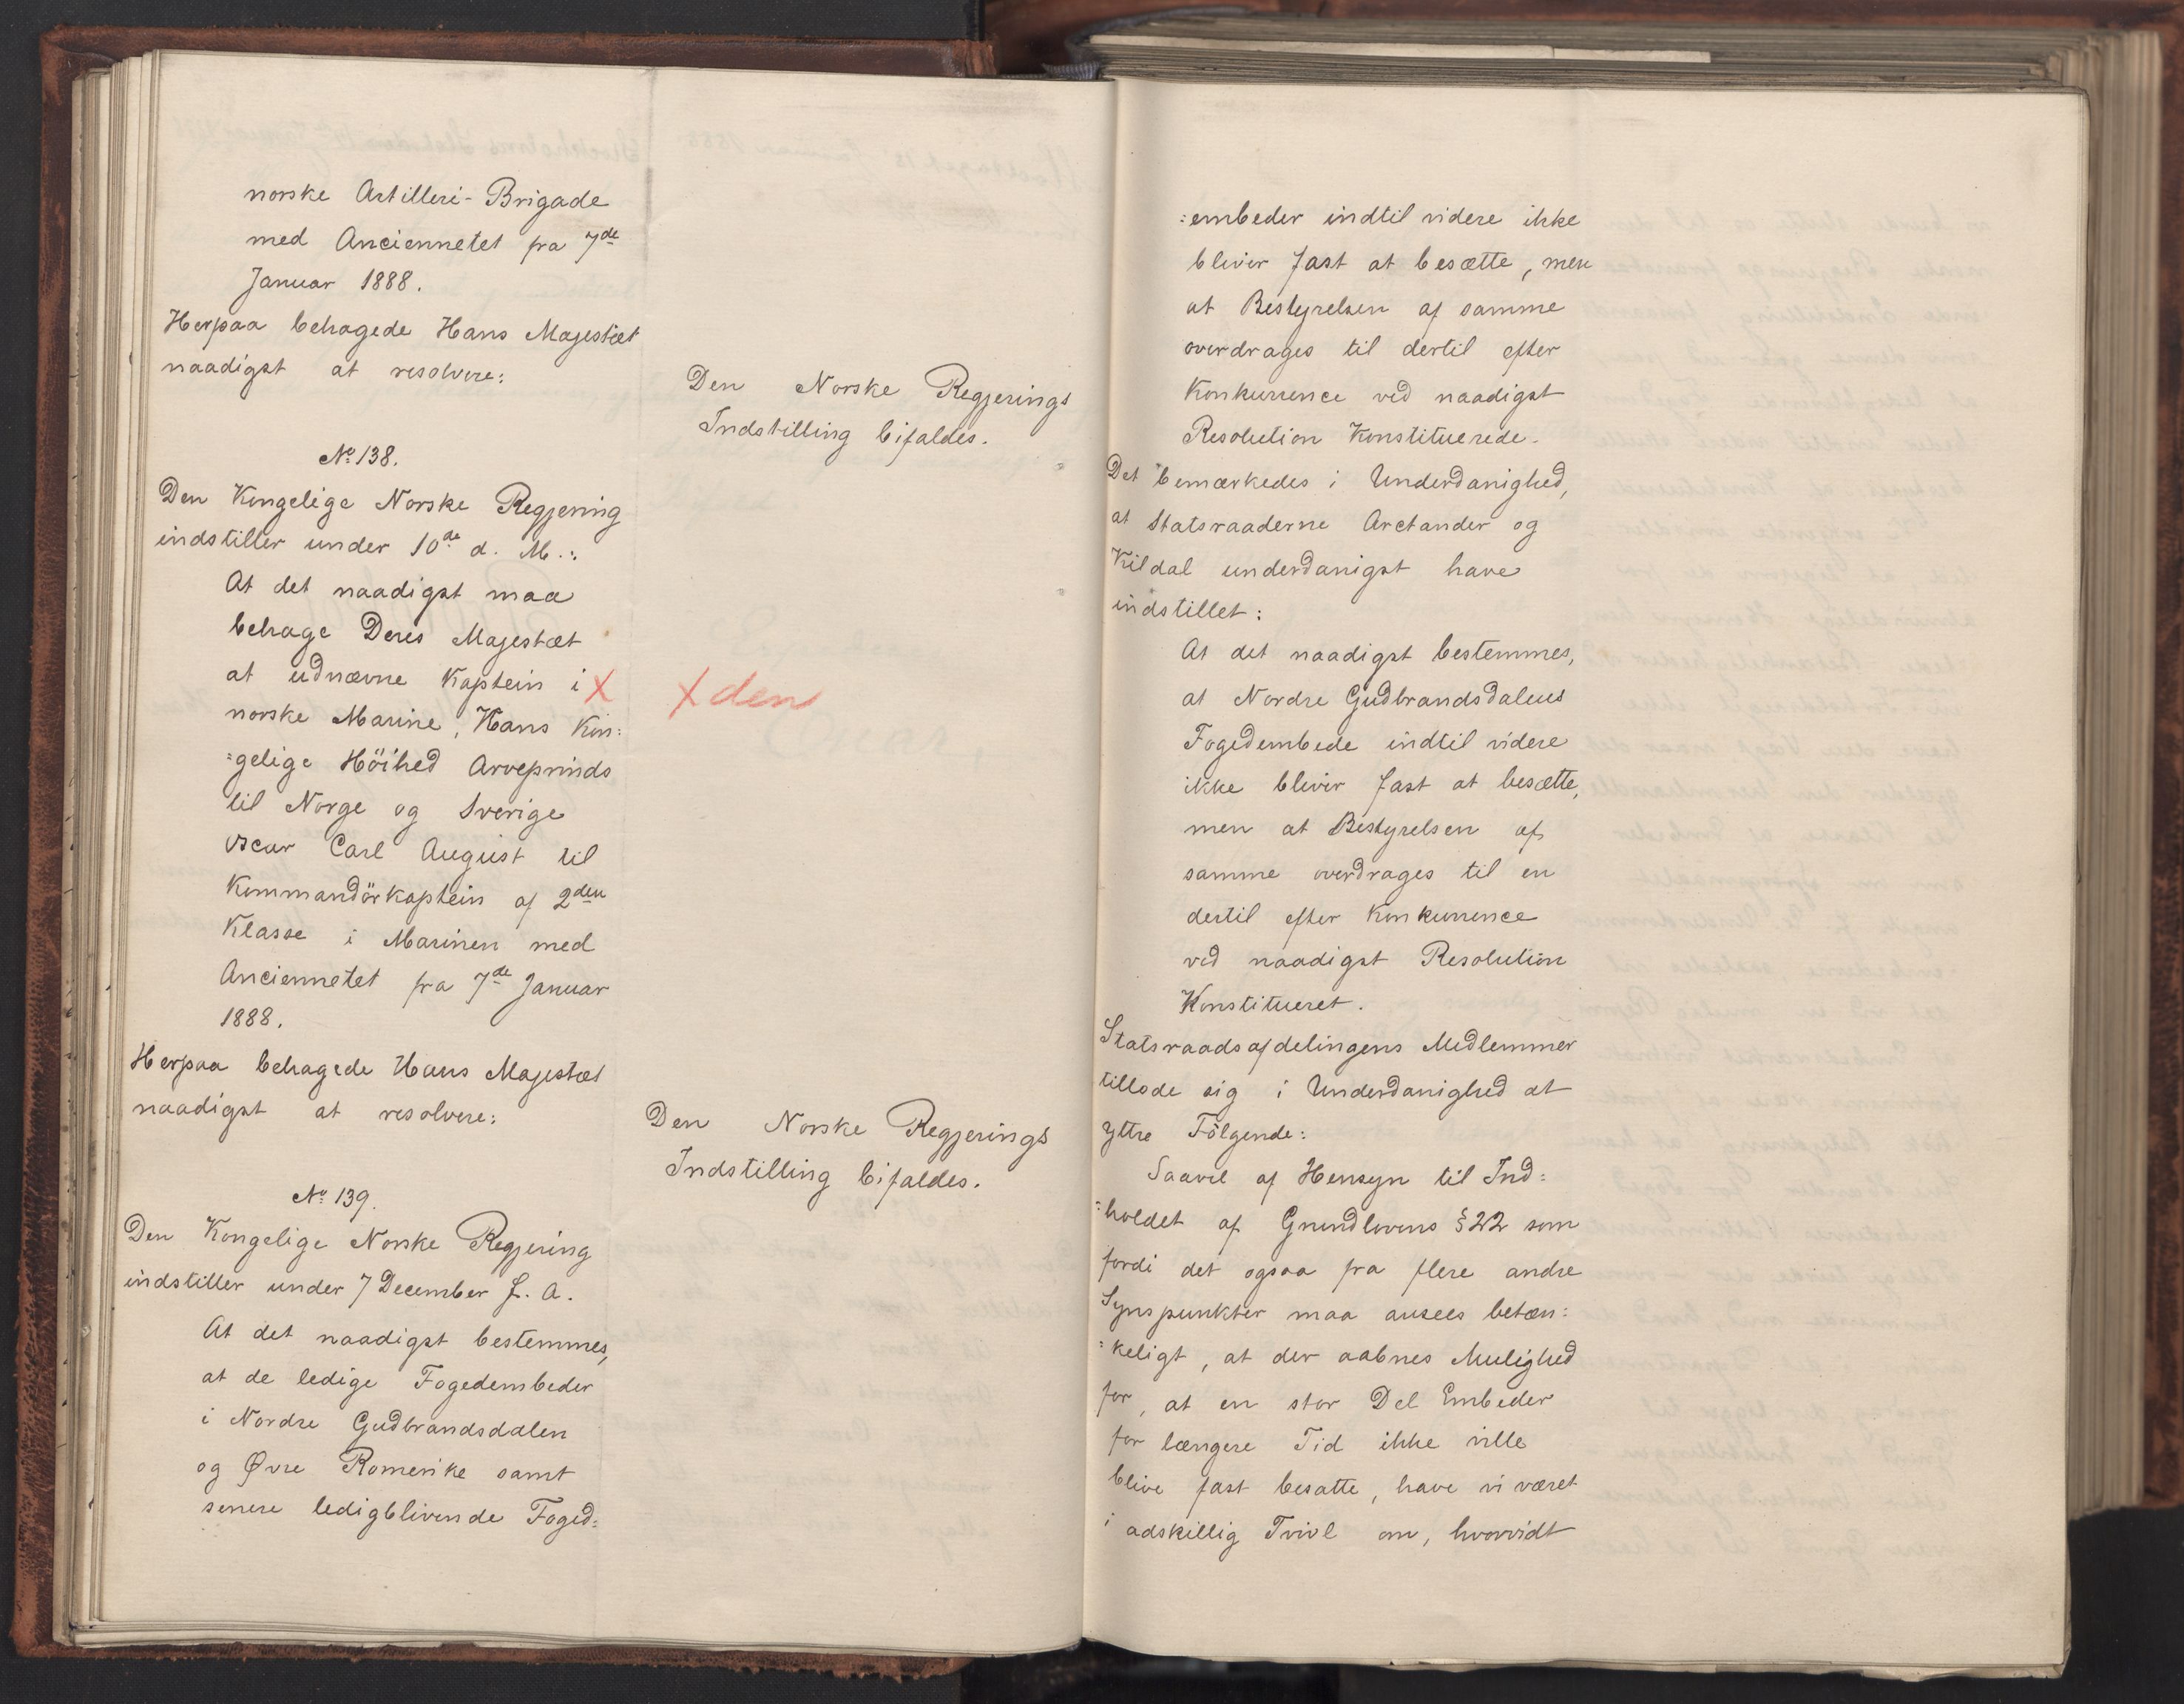 norske Artilleri-Brigade
med Anciennetet fra 7de
Januar 1888.
Herpaa behagede Hans Majestæt
naadigst at resolvere:
Den Norske Regjerings
Indstilling bifaldes.
No. 138.
Den Kongelige Norske Regjering
indstiller under 10de d. M.:
At det naadigst maa
behage Deres Majestæt
at udnævne Kaptein i X
X den
norske Marine, Hans Kon:
:gelige Höihed Arveprinds
til Norge og Sverige
Oscar Carl August til
Kommandörkaptein af 2den
Klasse i Marinen med
Anciennetet fra 7de Januar
1888.
Herpaa behagede Hans Majestæt
naadigst at resolvere:
Den Norske Regjerings
Indstilling bifaldes.
No. 139.
Den Kongelige Norske Regjering
indstiller under 7 December f. A.
At det naadigst bestemmes,
at de ledige Fogedembeder
i Nordre Gudbrandsdalen
og Øvre Romerike samt
senere ledigblivende Foged:
:embeder indtil videre ikke
bliver fast at besætte, men
at Bestyrelsen af samme
overdrages til dertil efter
Konkurrence ved naadigst
Resolution Konstituerede.
Det bemærkedes i Underdanighed,
at Statsraaderne Arctander og
Kildal underdanigst have
indstillet:
At det naadigst bestemmes,
at Nordre Gudbrandsdalens
Fogedembede indtil videre
ikke bliver fast at besætte,
men at Bestyrelsen af
samme overdrages til en
dertil efter Konkurrence
ved naadigst Resolution
Konstitueret.
Statsraadsafdelingens Medlemmer
tillode sig i Underdanighed at
yttre Følgende:
Saavel af Hensyn til Ind:
:holdet af Grundlovens § 22 som
fordi det ogsaa fra flere andre
Synspunkter maa ansees betæn:
:keligt, at der aabnes Mulighed
for, at en stor Del Embeder
for længere Tid ikke ville
blive fast besatte, have vi været
i adskillig Tvivl om, hvorvidt